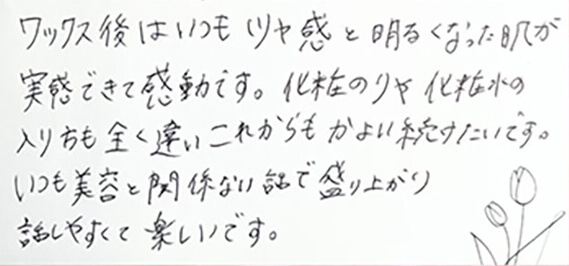 ワックス後はいつもツヤ感と明るくなった肌が
実感できて感動です。化粧のりや化粧水の
入り方も全く違いこれからもかよい続けたいです。
いつも美容と関係ない話で盛り上がり
話しやすくて楽しいです。